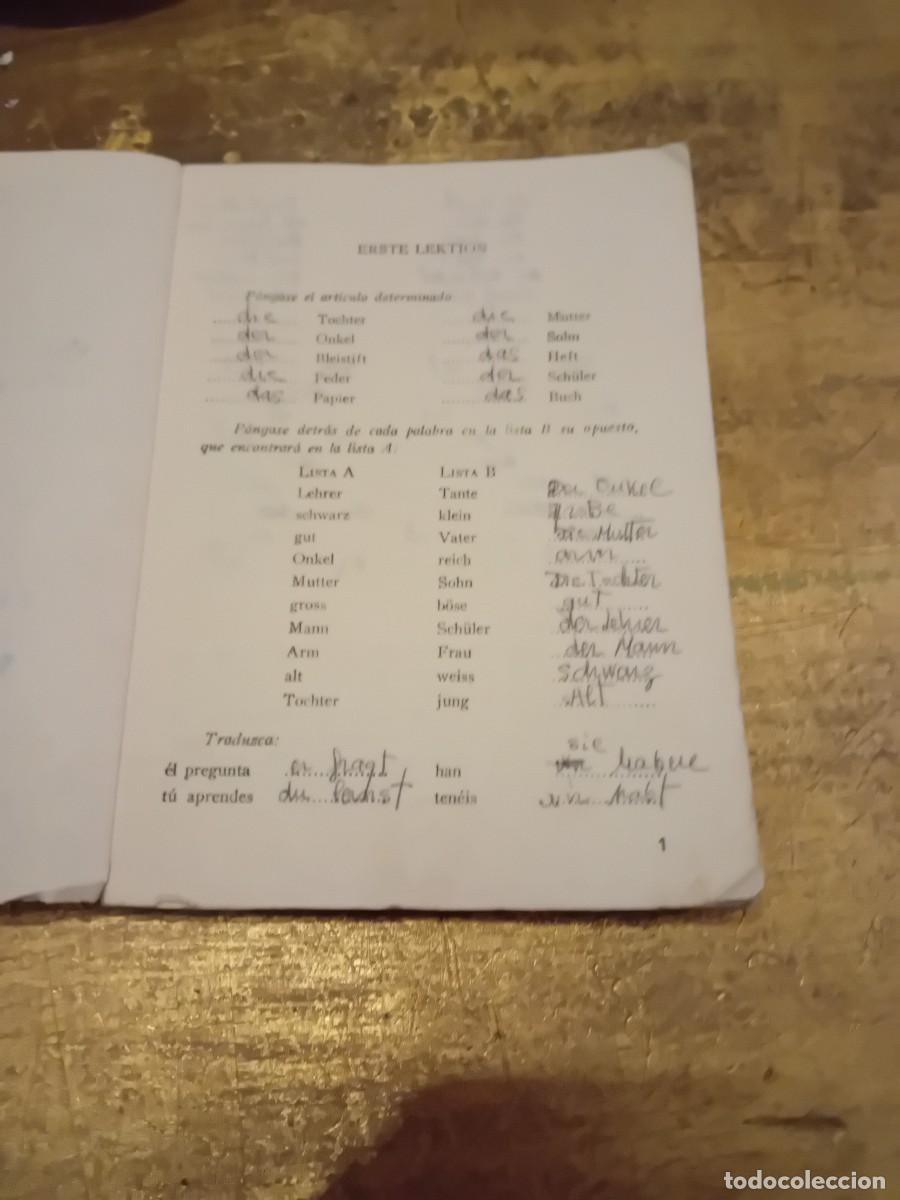 ERSTE LEKTION
Póngase el artículo determinado
die Tochter die Mutter
der Onkel der Sohn
der Bleistift das Heft
die Feder der Schüler
das Papier das Buch
Póngase detrás de cada palabra en la lista B su opuesto,
que encontrará en la lista A:
LISTA A LISTA B
Lehrer Tante Der Onkel
schwarz klein
gut Vater Die Mutter
Onkel reich arm
Mutter Sohn Die Tochter
gross böse gut
Mann Schüler der Lehrer
Arm Frau der Mann
alt weiss schwarz
Tochter jung Alt
Traduzca:
sie
él pregunta er fragt han
tú aprendes du lernst tenéis habt
1
todocoleccion